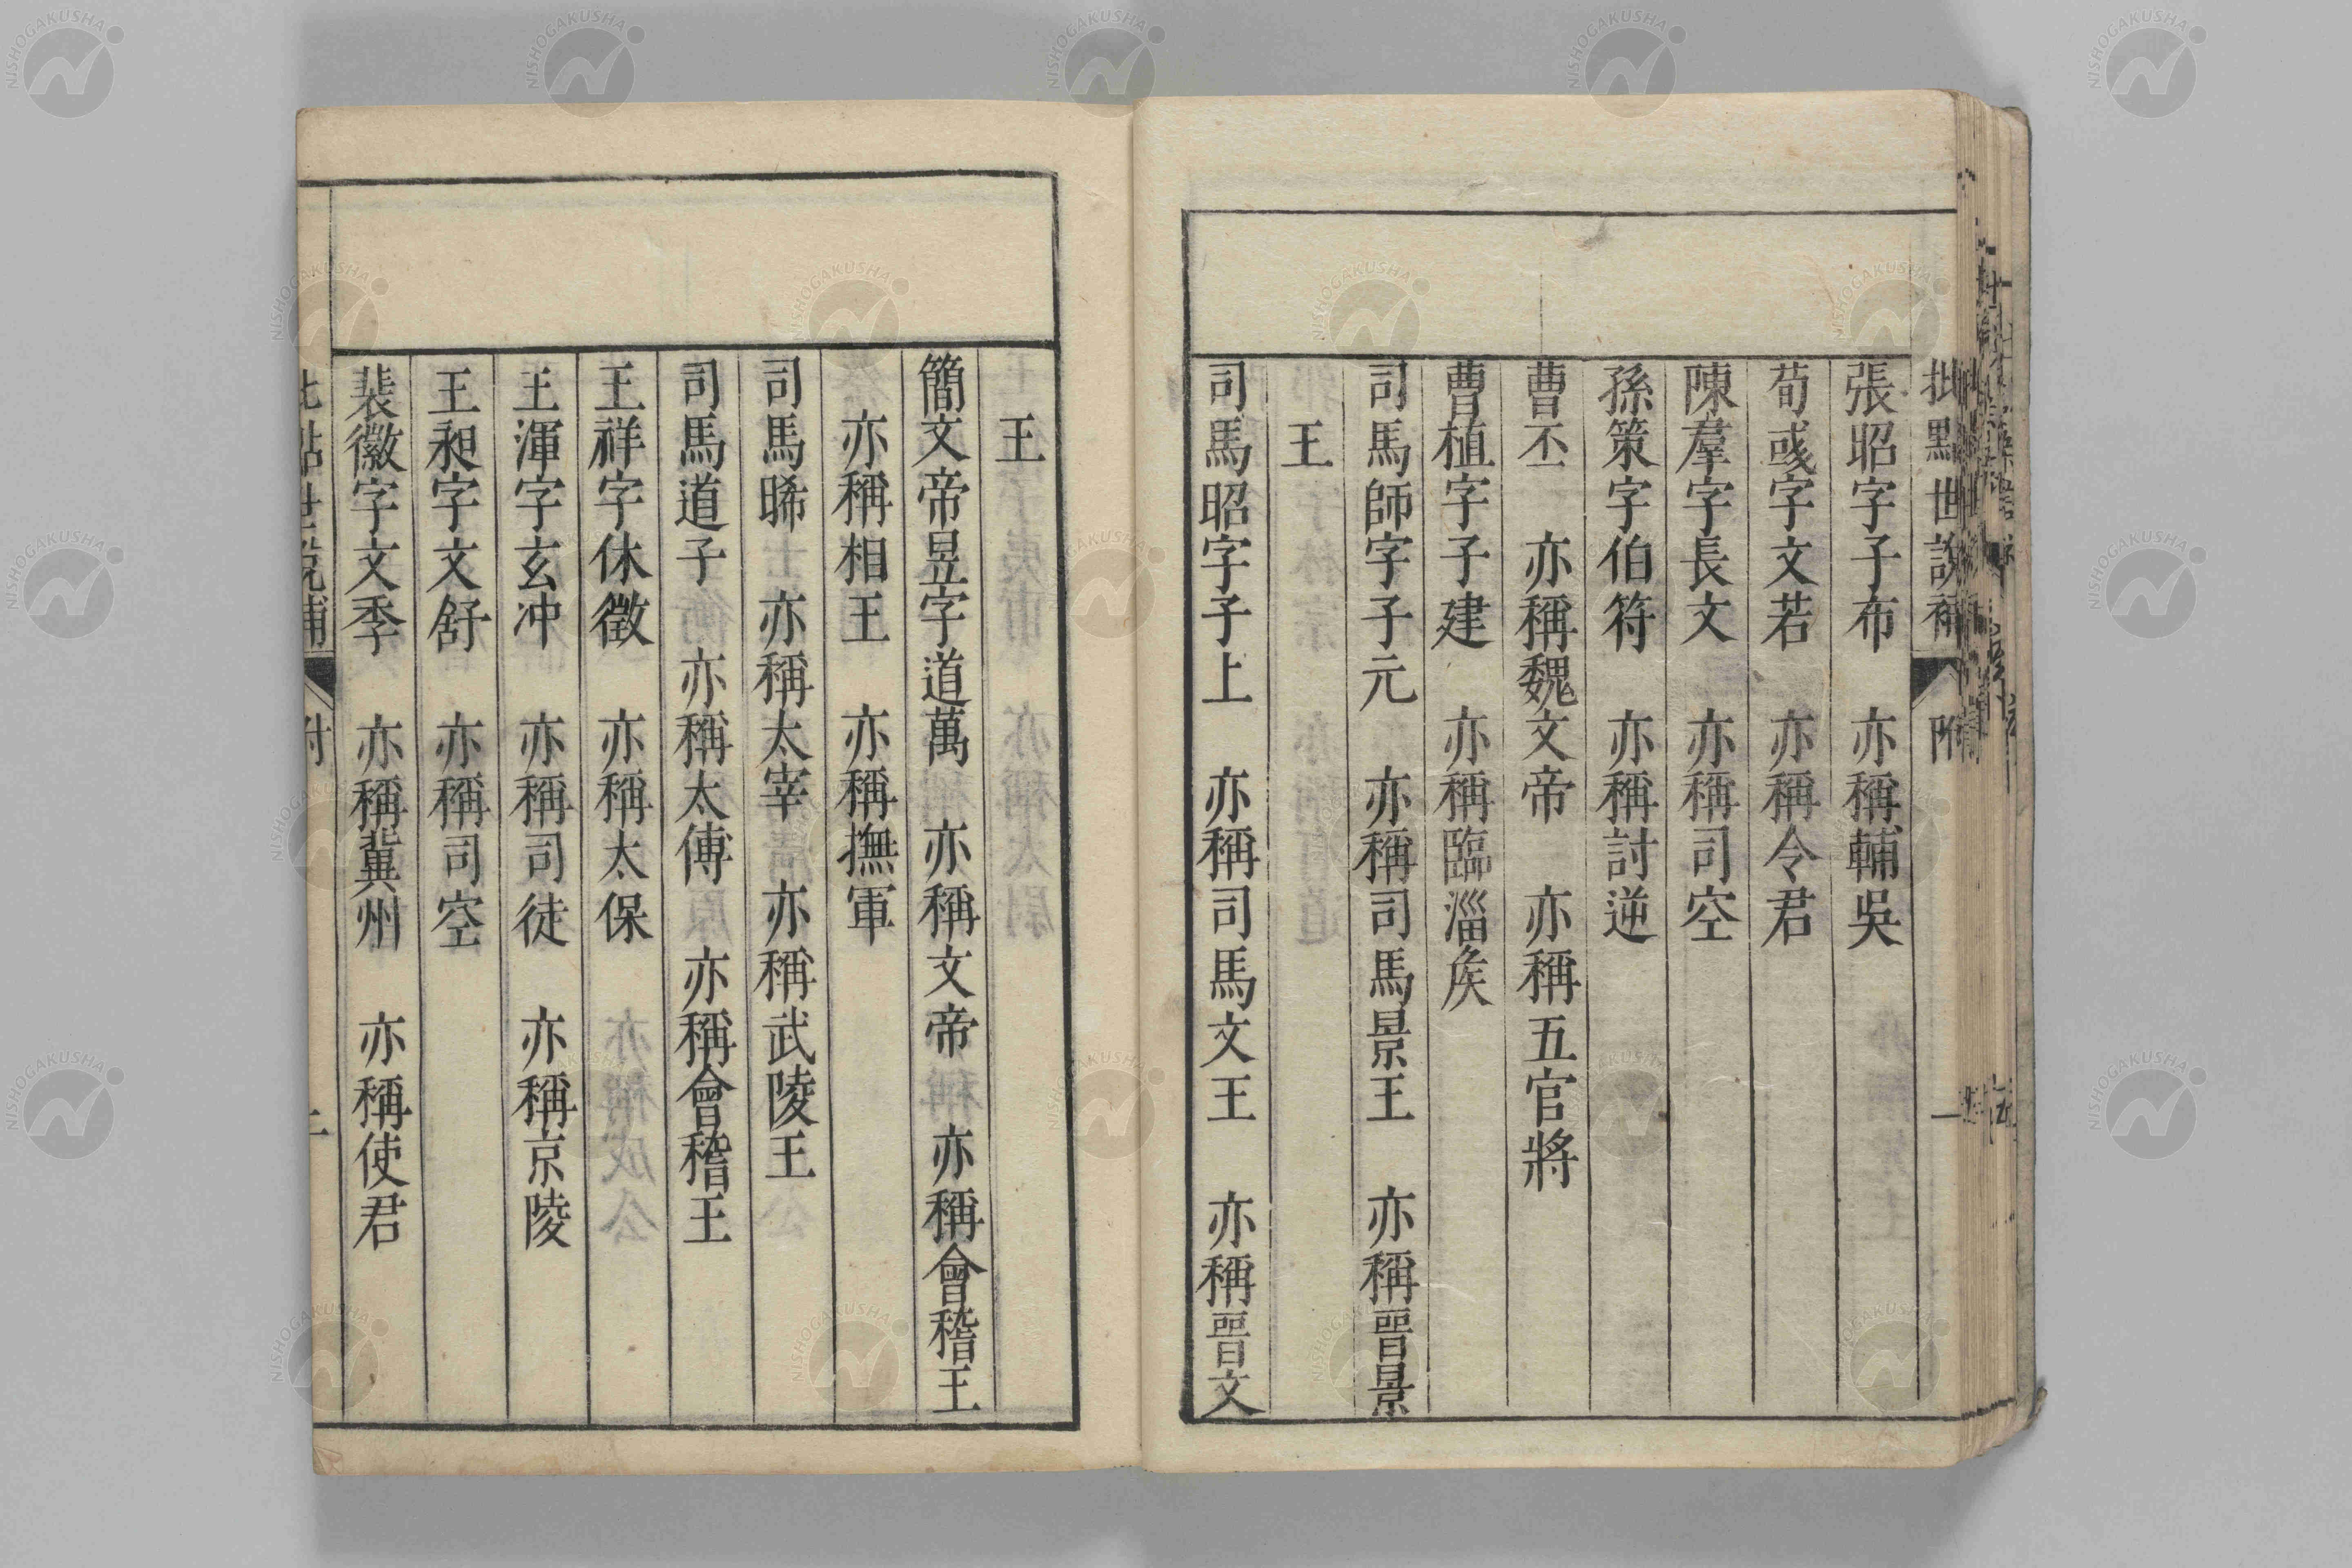 批點世說補 附 一
張昭字子布 亦稱輔吳
荀彧字文若 亦稱令君
陳羣字長文 亦稱司空
孫策字伯符 亦稱討逆
曹丕 亦稱魏文帝 亦稱五官將
曹植字子建 亦稱臨淄矦
司馬師字子元 亦稱司馬景王 亦稱晉景
王
司馬昭字子上 亦稱司馬文王 亦稱晉文
王
簡文帝昱字道萬 亦稱文帝 亦稱會稽王
亦稱相王 亦稱撫軍
司馬晞 亦稱太宰 亦稱武陵王
司馬道子 亦稱太傅 亦稱會稽王
王祥字休徵 亦稱太保
王渾字玄冲 亦稱司徒 亦稱京陵
王昶字文舒 亦稱司空
裴徽字文季 亦稱冀州 亦稱使君
NISHOGAKUSHA